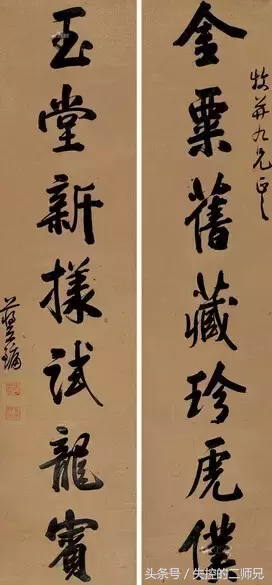 九兄正之
金粟舊藏珍虎僕
玉堂新樣試龍賓
头条号 / 失控的二师兄